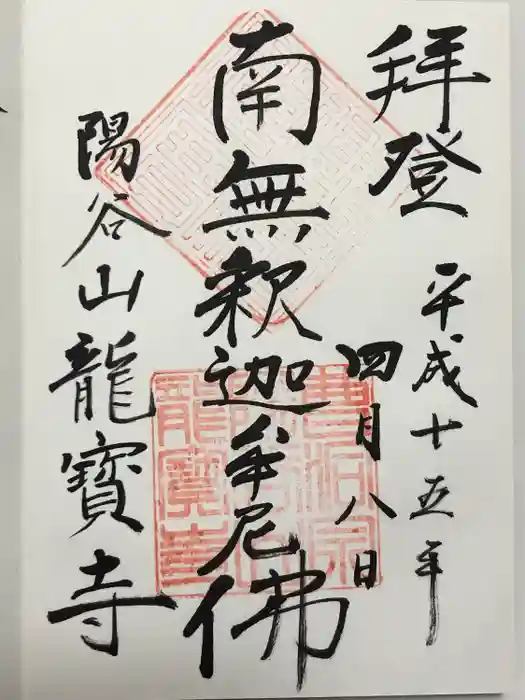 拝登
平成十五年
四月八日
南無釈迦牟尼佛
陽谷山龍寶寺